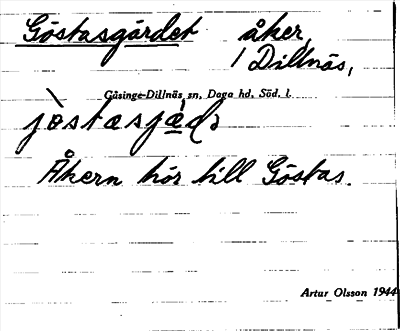 Göstasgärdet åker,
1 Dillnäs,
Gåsinge-Dillnäs sn, Daga hd, Söd. l.
Åkern hör till Göstas.
Artur Olsson 1944